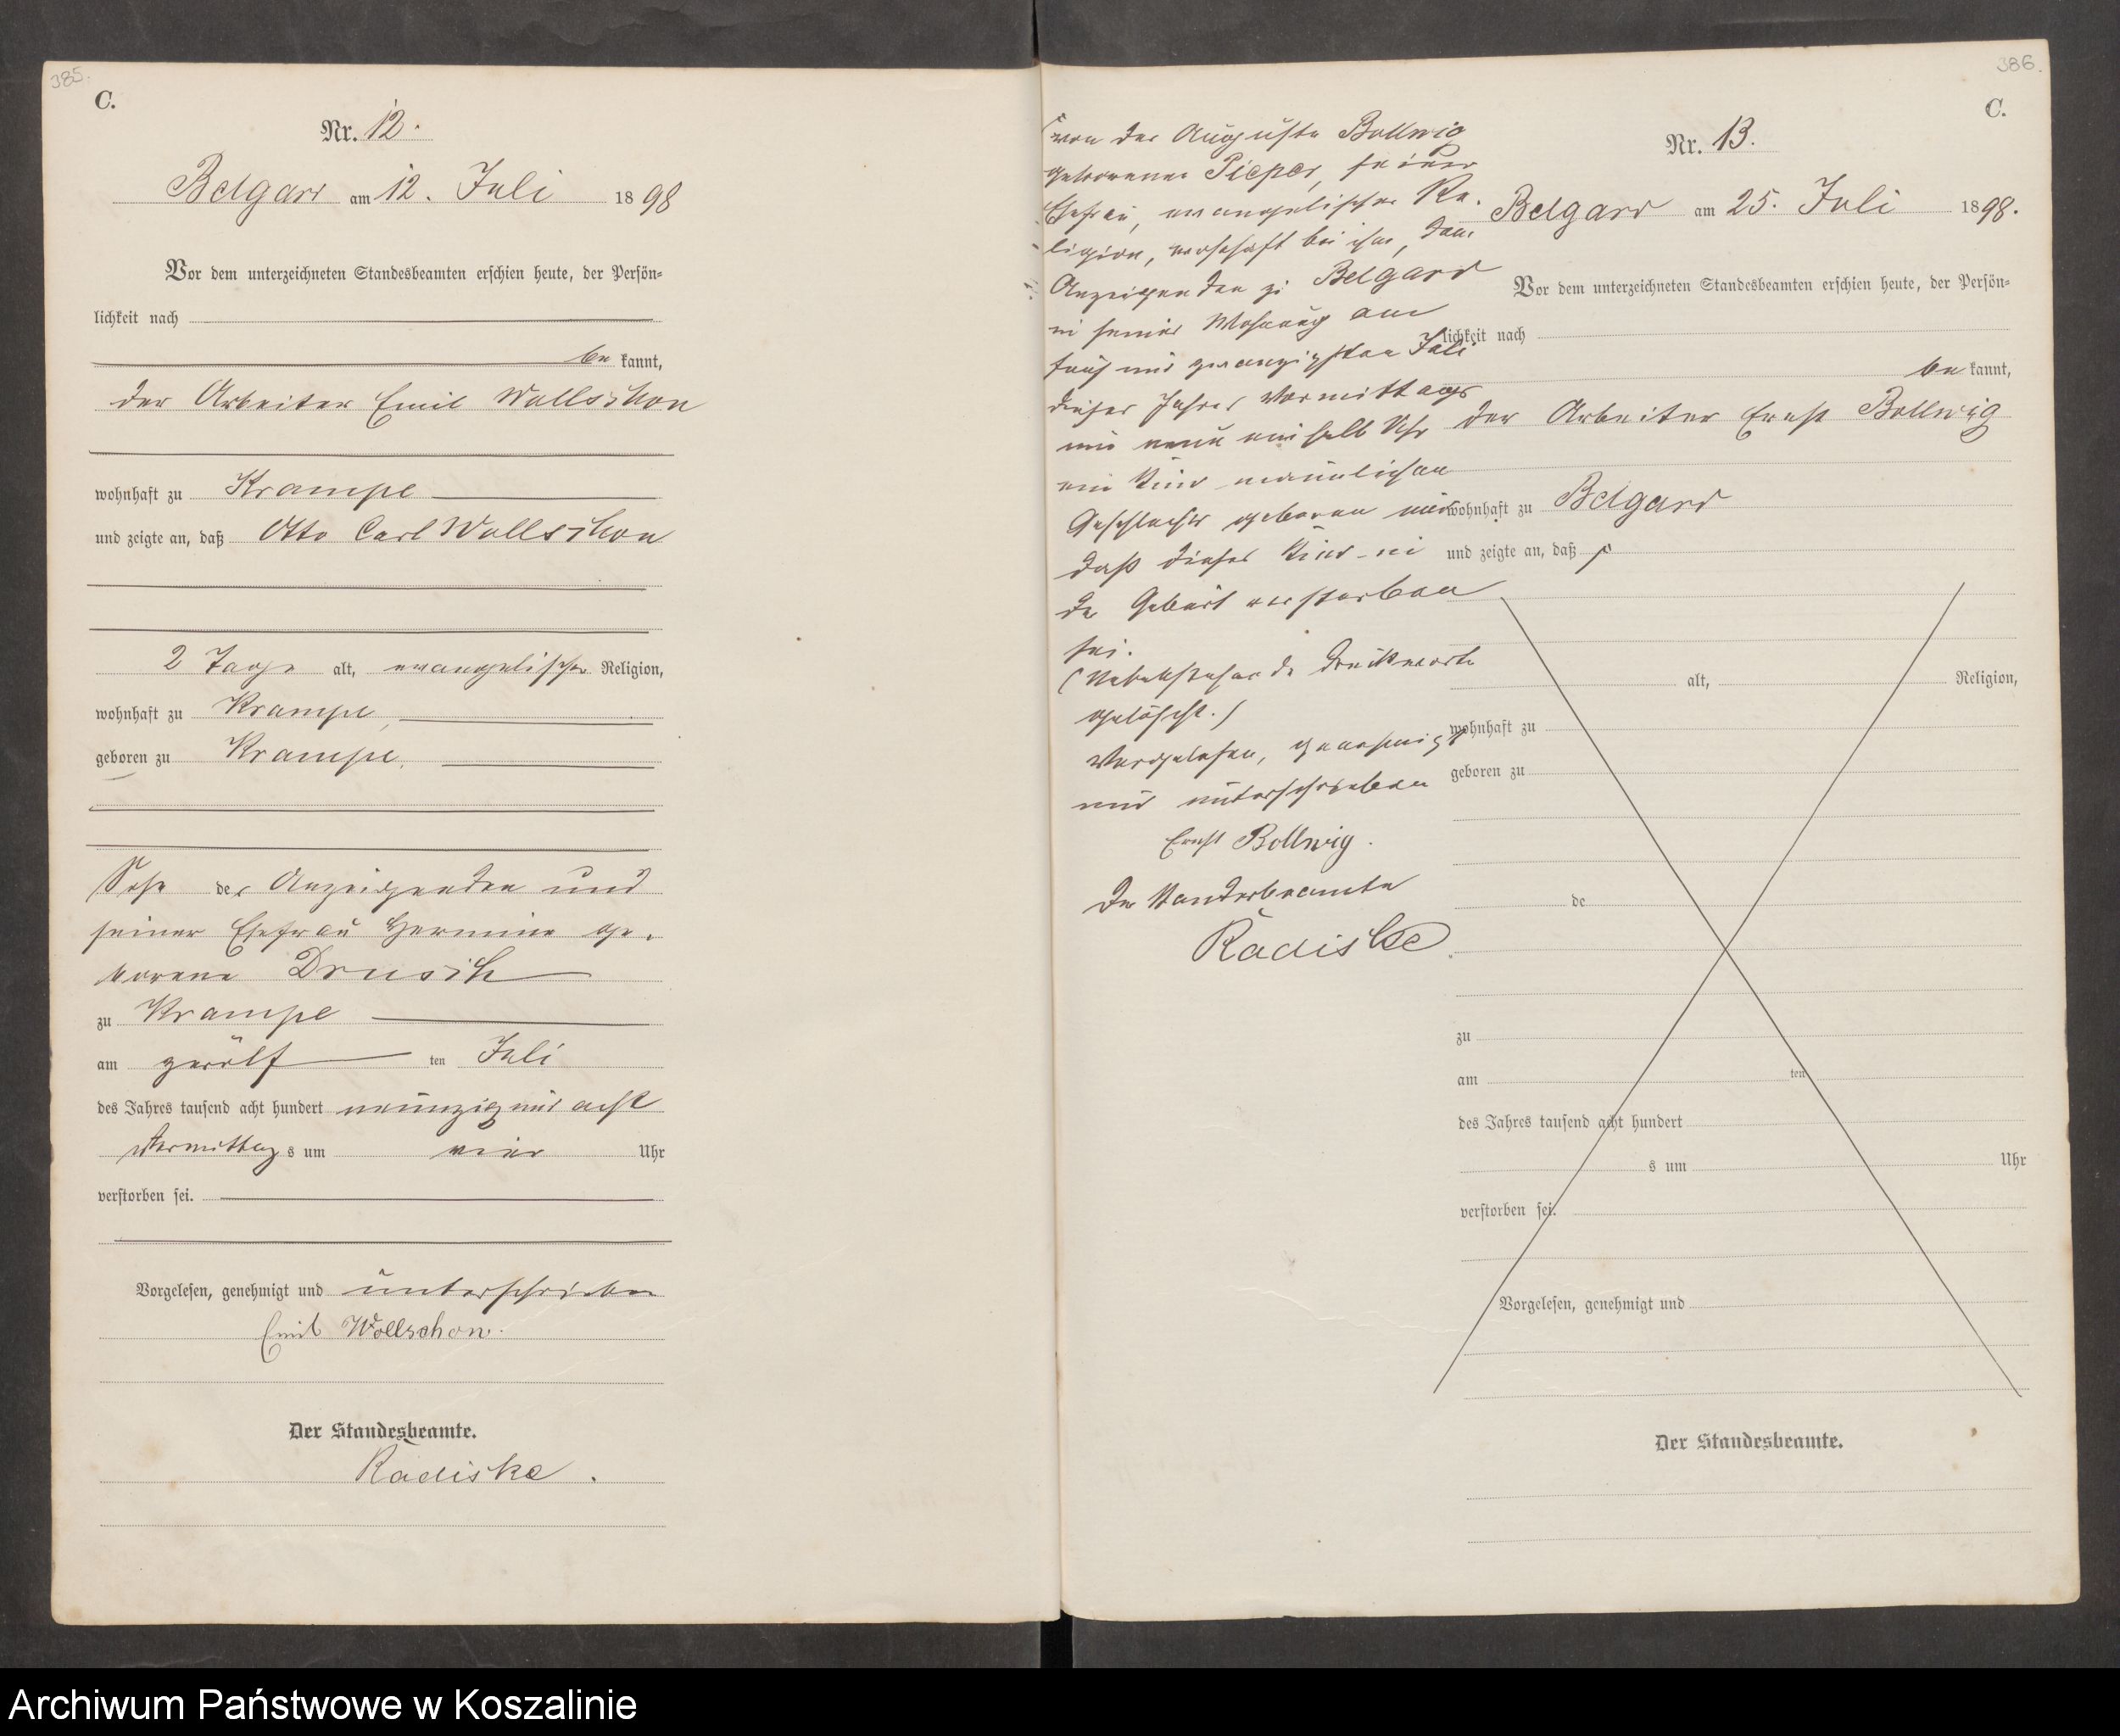 385.
C.
Nr. 12.
Belgard am 12. Juli 1898
Vor dem unterzeichneten Standesbeamten erschien heute, der Persön=
lichkeit nach
be kannt,
der Arbeiter Emil Wollschon
wohnhaft zu Krampe
und zeigte an, daß Otto Carl Wollschon
2 Tage alt, evangelischer Religion,
wohnhaft zu Krampe,
geboren zu Krampe,
Sohn des Anzeigenden und
seiner Ehefrau Hermine ge-
borene
zu Krampe
am zwölf ten Juli
des Jahres tausend acht hundert neunzig und acht
Vormittag s um vier Uhr
verstorben sei.
Vorgelesen, genehmigt und unterschrieben
Emil Wollschon.
Der Standesbeamte.
Radiske.
386.
C.
Nr. 13.
Belgard am 25. Juli 1898.
Vor dem unterzeichneten Standesbeamten erschien heute, der Persön=
lichkeit nach
be kannt,
der Arbeiter Ernst Bollwig
wohnhaft zu Belgard
und zeigte an, daß
von der Auguste Bollwig
geborenen Pieper, seiner
Ehefrau, evangelischer Re-
ligion, wohnhaft bei ihm, dem
Anzeigenden zu Belgard
in seiner Wohnung am
fünf und zwanzigsten Juli
dieses Jahres Vormittags
um neun ein halb Uhr
ein Kind männlichen
Geschlechts geboren und
daß dieses Kind in
der Geburt verstorben
sei.
(Nebenstehende Druckworte
gelöscht.)
Vorgelesen, genehmigt
und unterschrieben
Ernst Bollwig.
Der Standesbeamte
Radiske
alt, Religion,
wohnhaft zu
geboren zu
de
zu
am ten
des Jahres tausend acht hundert
s um Uhr
verstorben sei.
Vorgelesen, genehmigt und
Der Standesbeamte.
Archiwum Państwowe w Koszalinie